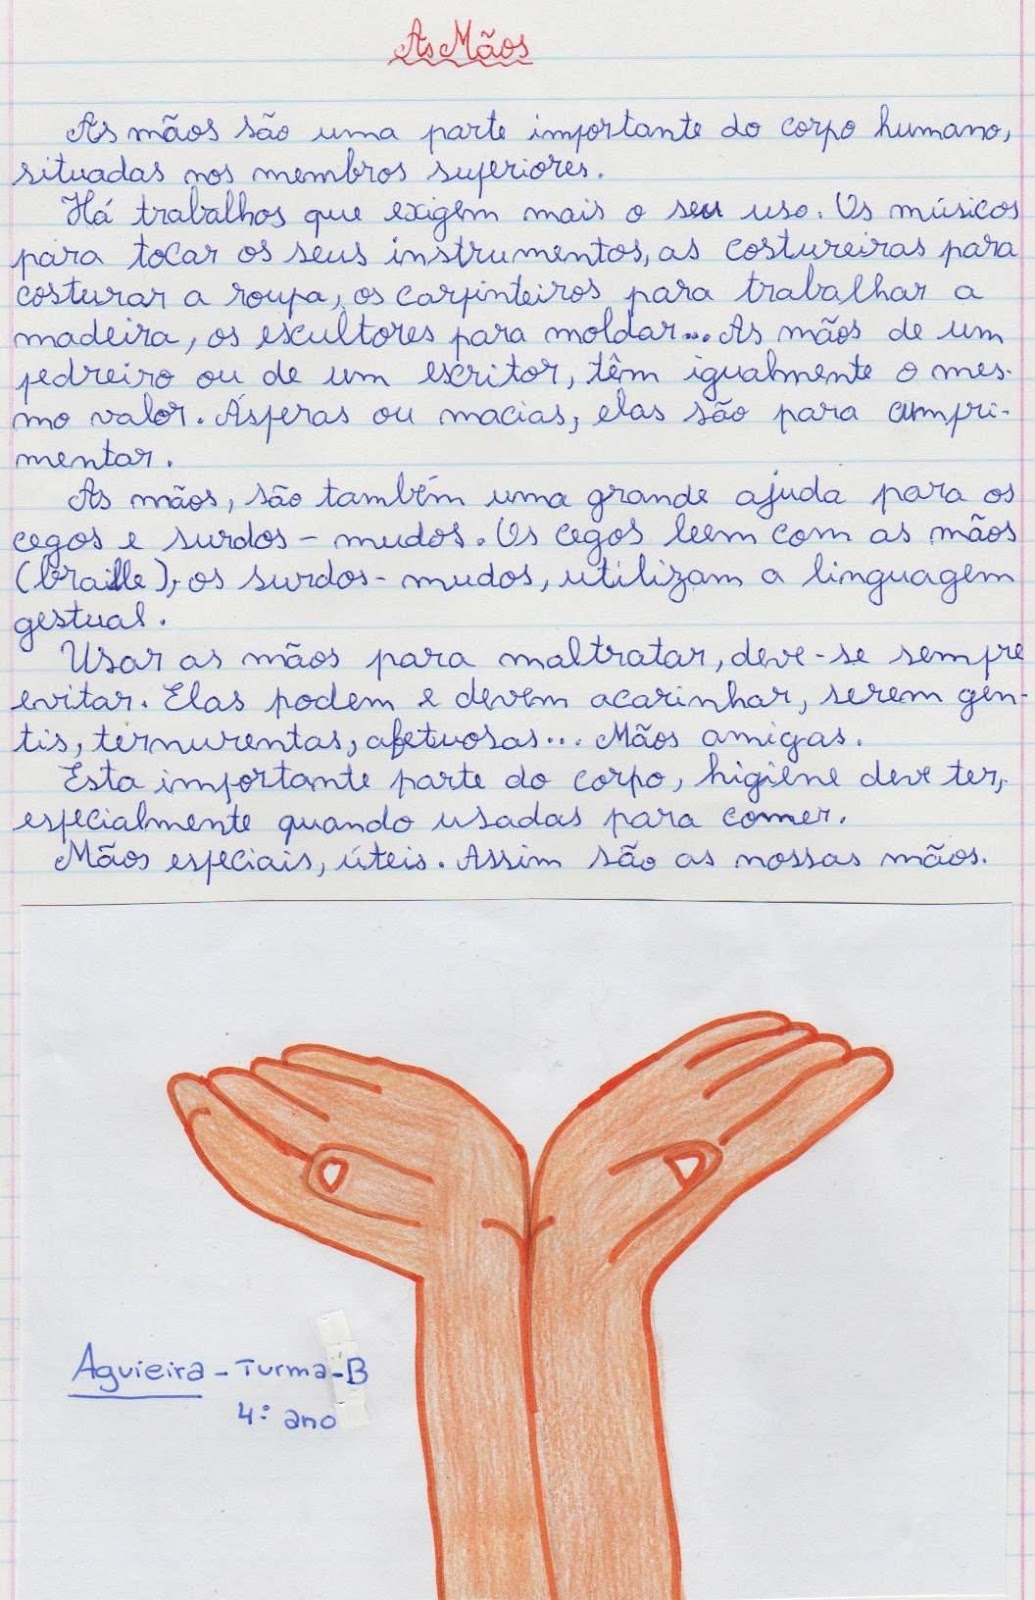 As Mãos
As mãos são uma parte importante do corpo humano,
situadas nos membros superiores.
Há trabalhos que exigem mais o seu uso. Os músicos
para tocar os seus instrumentos, as costureiras para
costurar a roupa, os carpinteiros para trabalhar a
madeira, os escultores para moldar... As mãos de um
pedreiro ou de um escritor, têm igualmente o mes-
mo valor. Ásperas ou macias, elas são para cumpri-
mentar.
As mãos, são também uma grande ajuda para os
cegos e surdos-mudos. Os cegos leem com as mãos
(braille), os surdos-mudos, utilizam a linguagem
gestual.
Usar as mãos para maltratar, deve-se sempre
evitar. Elas podem e devem acarinhar, serem gen-
tis, ternurentas, afetuosas... Mãos amigas.
Esta importante parte do corpo, higiene deve ter,
especialmente quando usadas para comer.
Mãos especiais, úteis. Assim são as nossas mãos.
Aguieira - Turma-B
4º ano